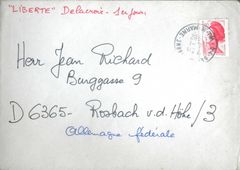 "LIBERTE" Delacroix - 1er jour
Herr Jean Richard
Burggasse 9
D 6365- Rosbach v.d. Höhe /3
Allemagne fédérale